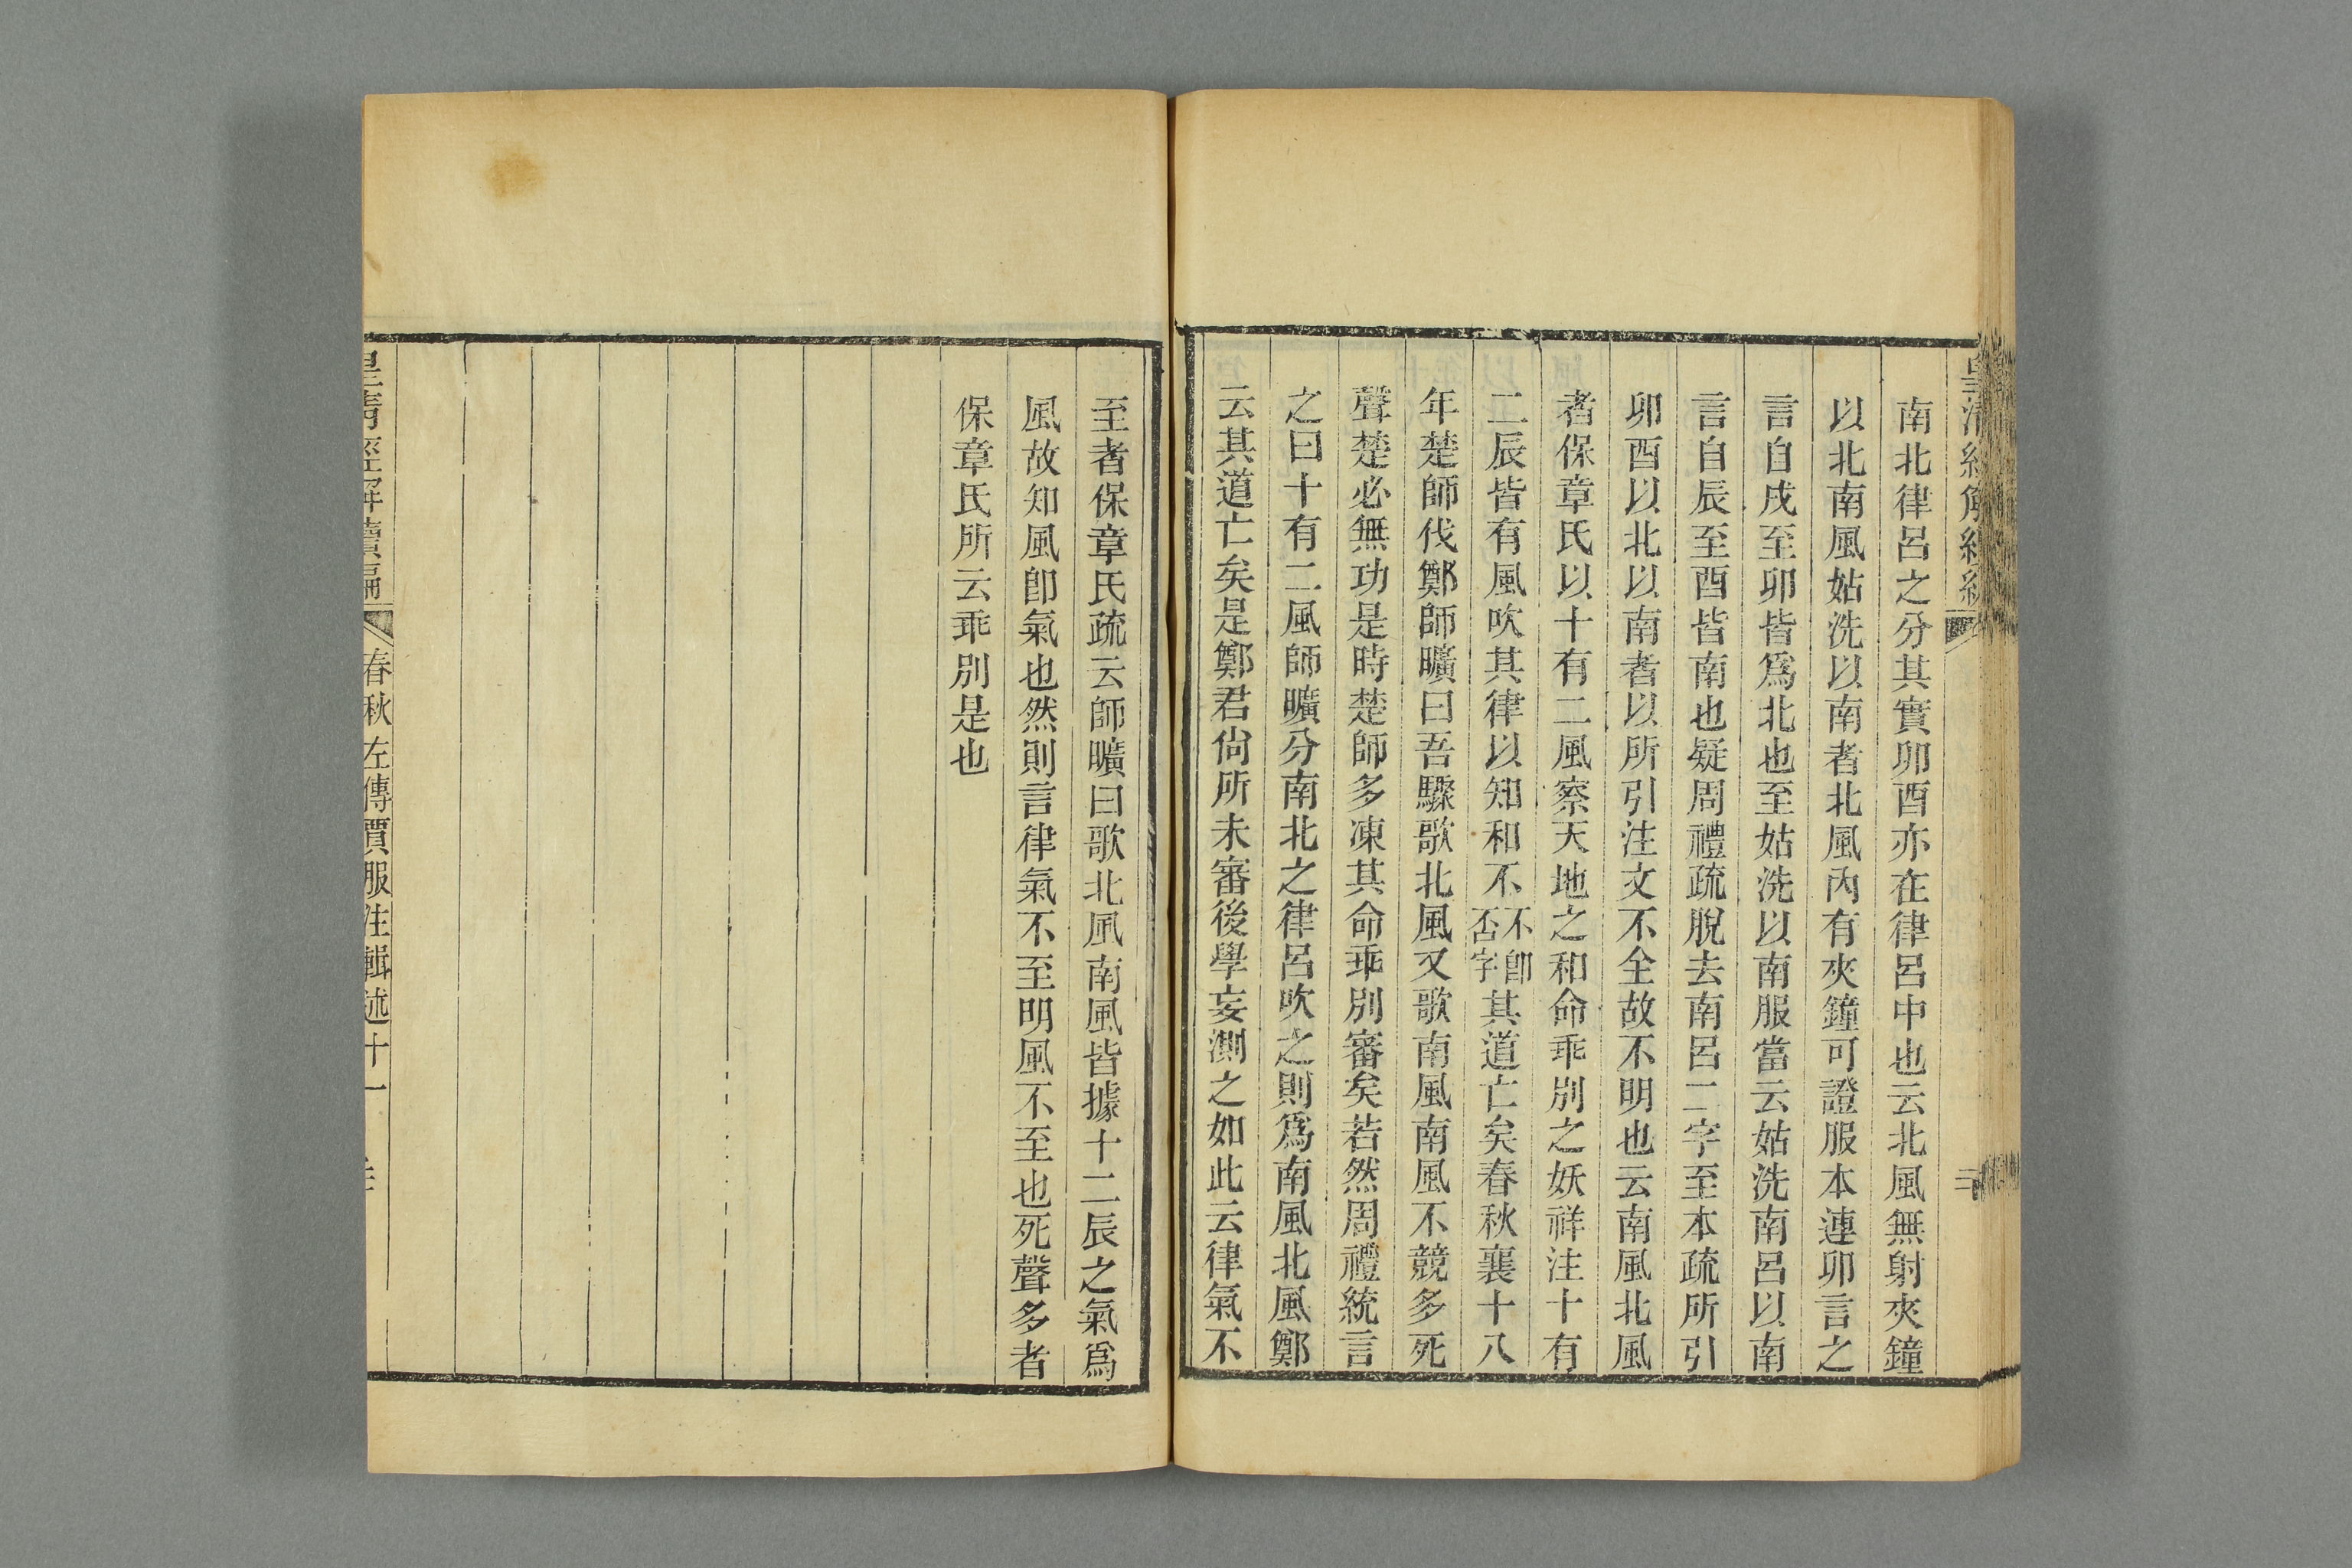 南北律呂之分其實卯酉亦在律呂中也云北風無射夾鐘
以北南風姑洗以南者北風內有夾鐘可證服本連卯言之
言自戌至卯皆爲北也至姑洗以南服當云姑洗南呂以南
言自辰至酉皆南也疑周禮疏脫去南呂二字至本疏所引
卯酉以北以南者以所引注文不全故不明也云南風北風
者保章氏以十有二風察天地之和命乖別之妖祥注十有
二辰皆有風吹其律以知和不不卽否字其道亡矣春秋襄十八
年楚師伐鄭師曠曰吾驟歌北風又歌南風南風不競多死
聲楚必無功是時楚師多凍其命乖別審矣若然周禮統言
之曰十有二風師曠分南北之律呂吹之則爲南風北風鄭
云其道亡矣是鄭君尙所未審後學妄測之如此云律氣不
至者保章氏疏云師曠曰歌北風南風皆據十二辰之氣爲
風故知風卽氣也然則言律氣不至明風不至也死聲多者
保章氏所云乖別是也
皇清經解續編 春秋左傳賈服注輯述十一